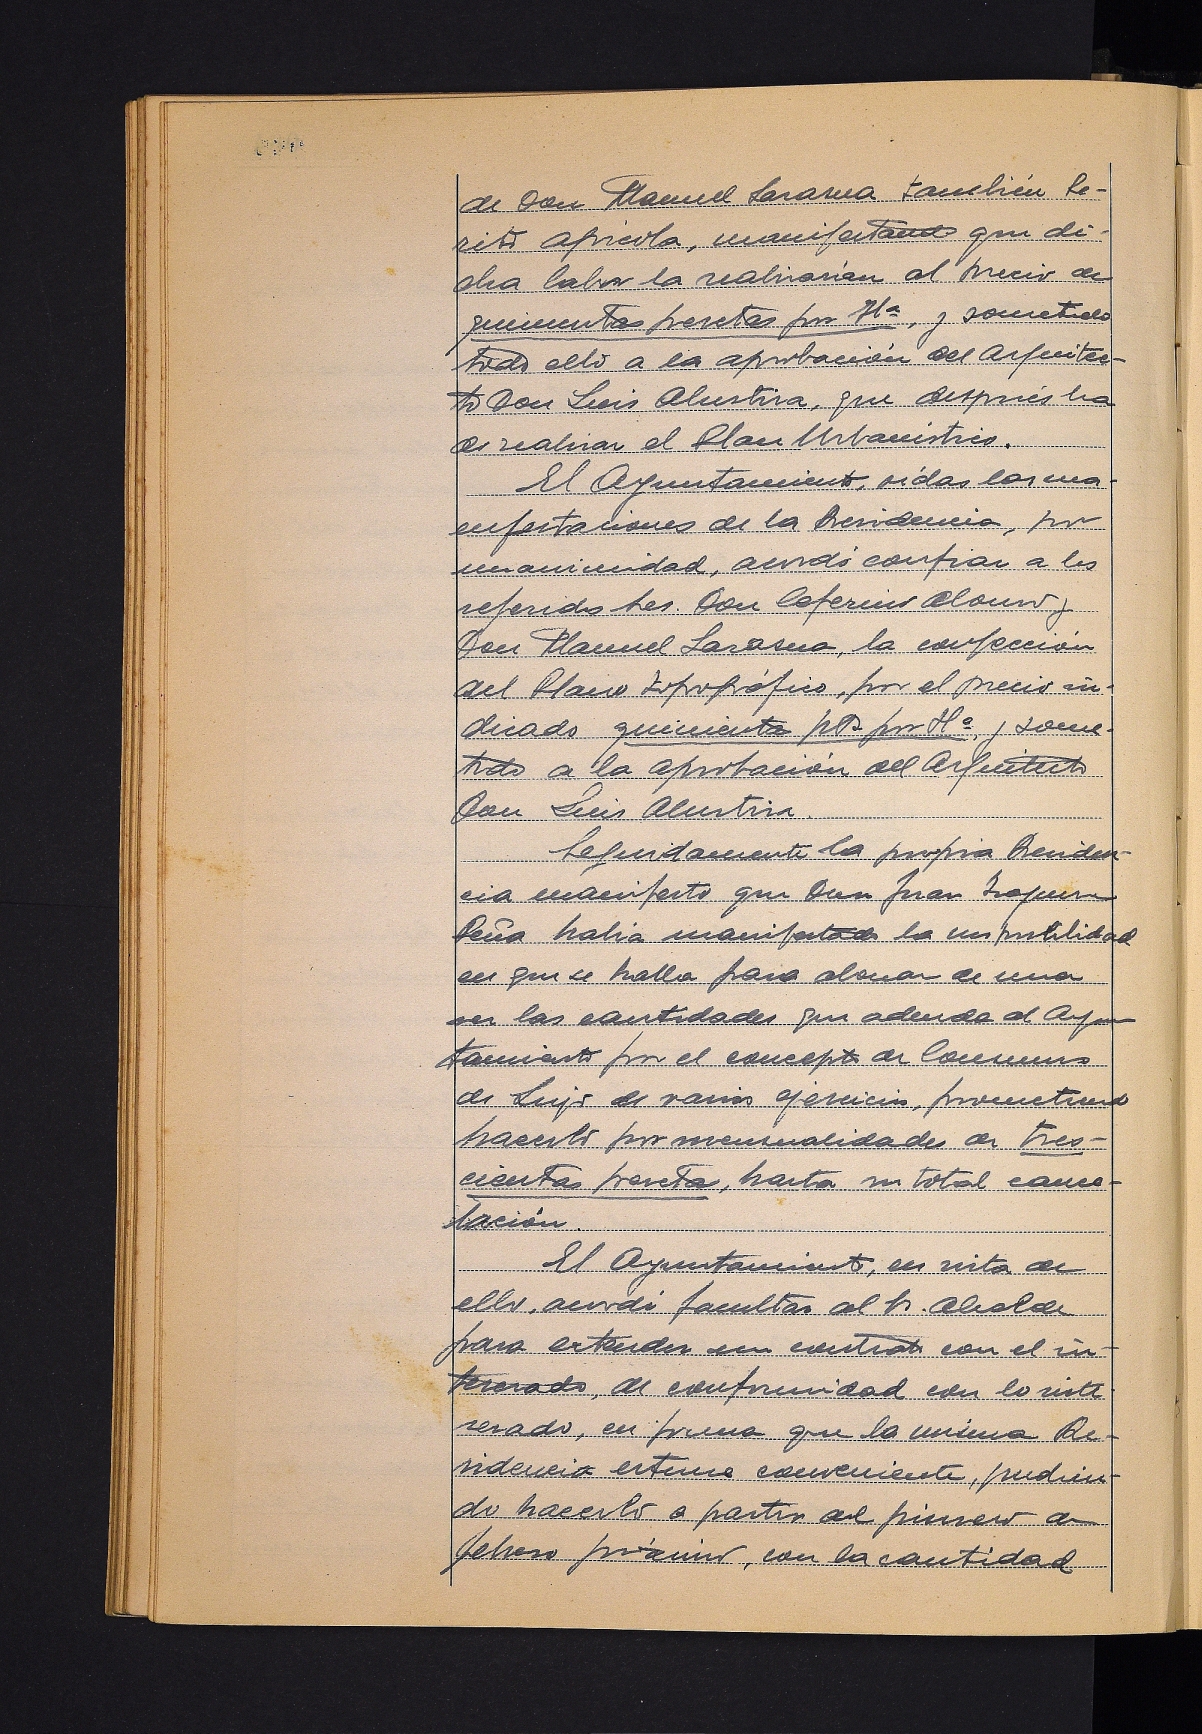 de Don Manuel Sarasua también Pe-
rito Agrícola, manifestando que di-
cha labor la realizarían al precio de
quinientas pesetas por Hª, y sometido
todo ello a la aprobación del Arquitec-
to Don Luis Alustiza, que después ha
de realizar el Plan Urbanístico.
El Ayuntamiento, oídas las ma-
nifestaciones de la Presidencia, por
unanimidad, acordó confiar a los
referidos Sres. Don Ceferino Alonso y
Don Manuel Sarasua, la confección
del Plano Topográfico, por el precio in-
dicado quinientas pts por Hª, y some-
tido a la aprobación del Arquitecto
Don Luis Alustiza.
Seguidamente la propia Presiden-
cia manifestó que Don Juan
Peña había manifestado la imposibilidad
en que se halla para abonar de una
vez las cantidades que adeuda al Ayun-
tamiento por el concepto de Consumos
de Lujo de varios ejercicios, prometiendo
hacerlo por mensualidades de tres-
cientas pesetas, hasta su total cance-
lación.
El Ayuntamiento, en vista de
ello, acordó facultar al Sr. Alcalde
para extender un contrato con el in-
teresado, de conformidad con lo inte-
resado, en forma que la misma Pre-
sidencia estime conveniente, pudien-
do hacerlo a partir del primero de
febrero próximo, con la cantidad